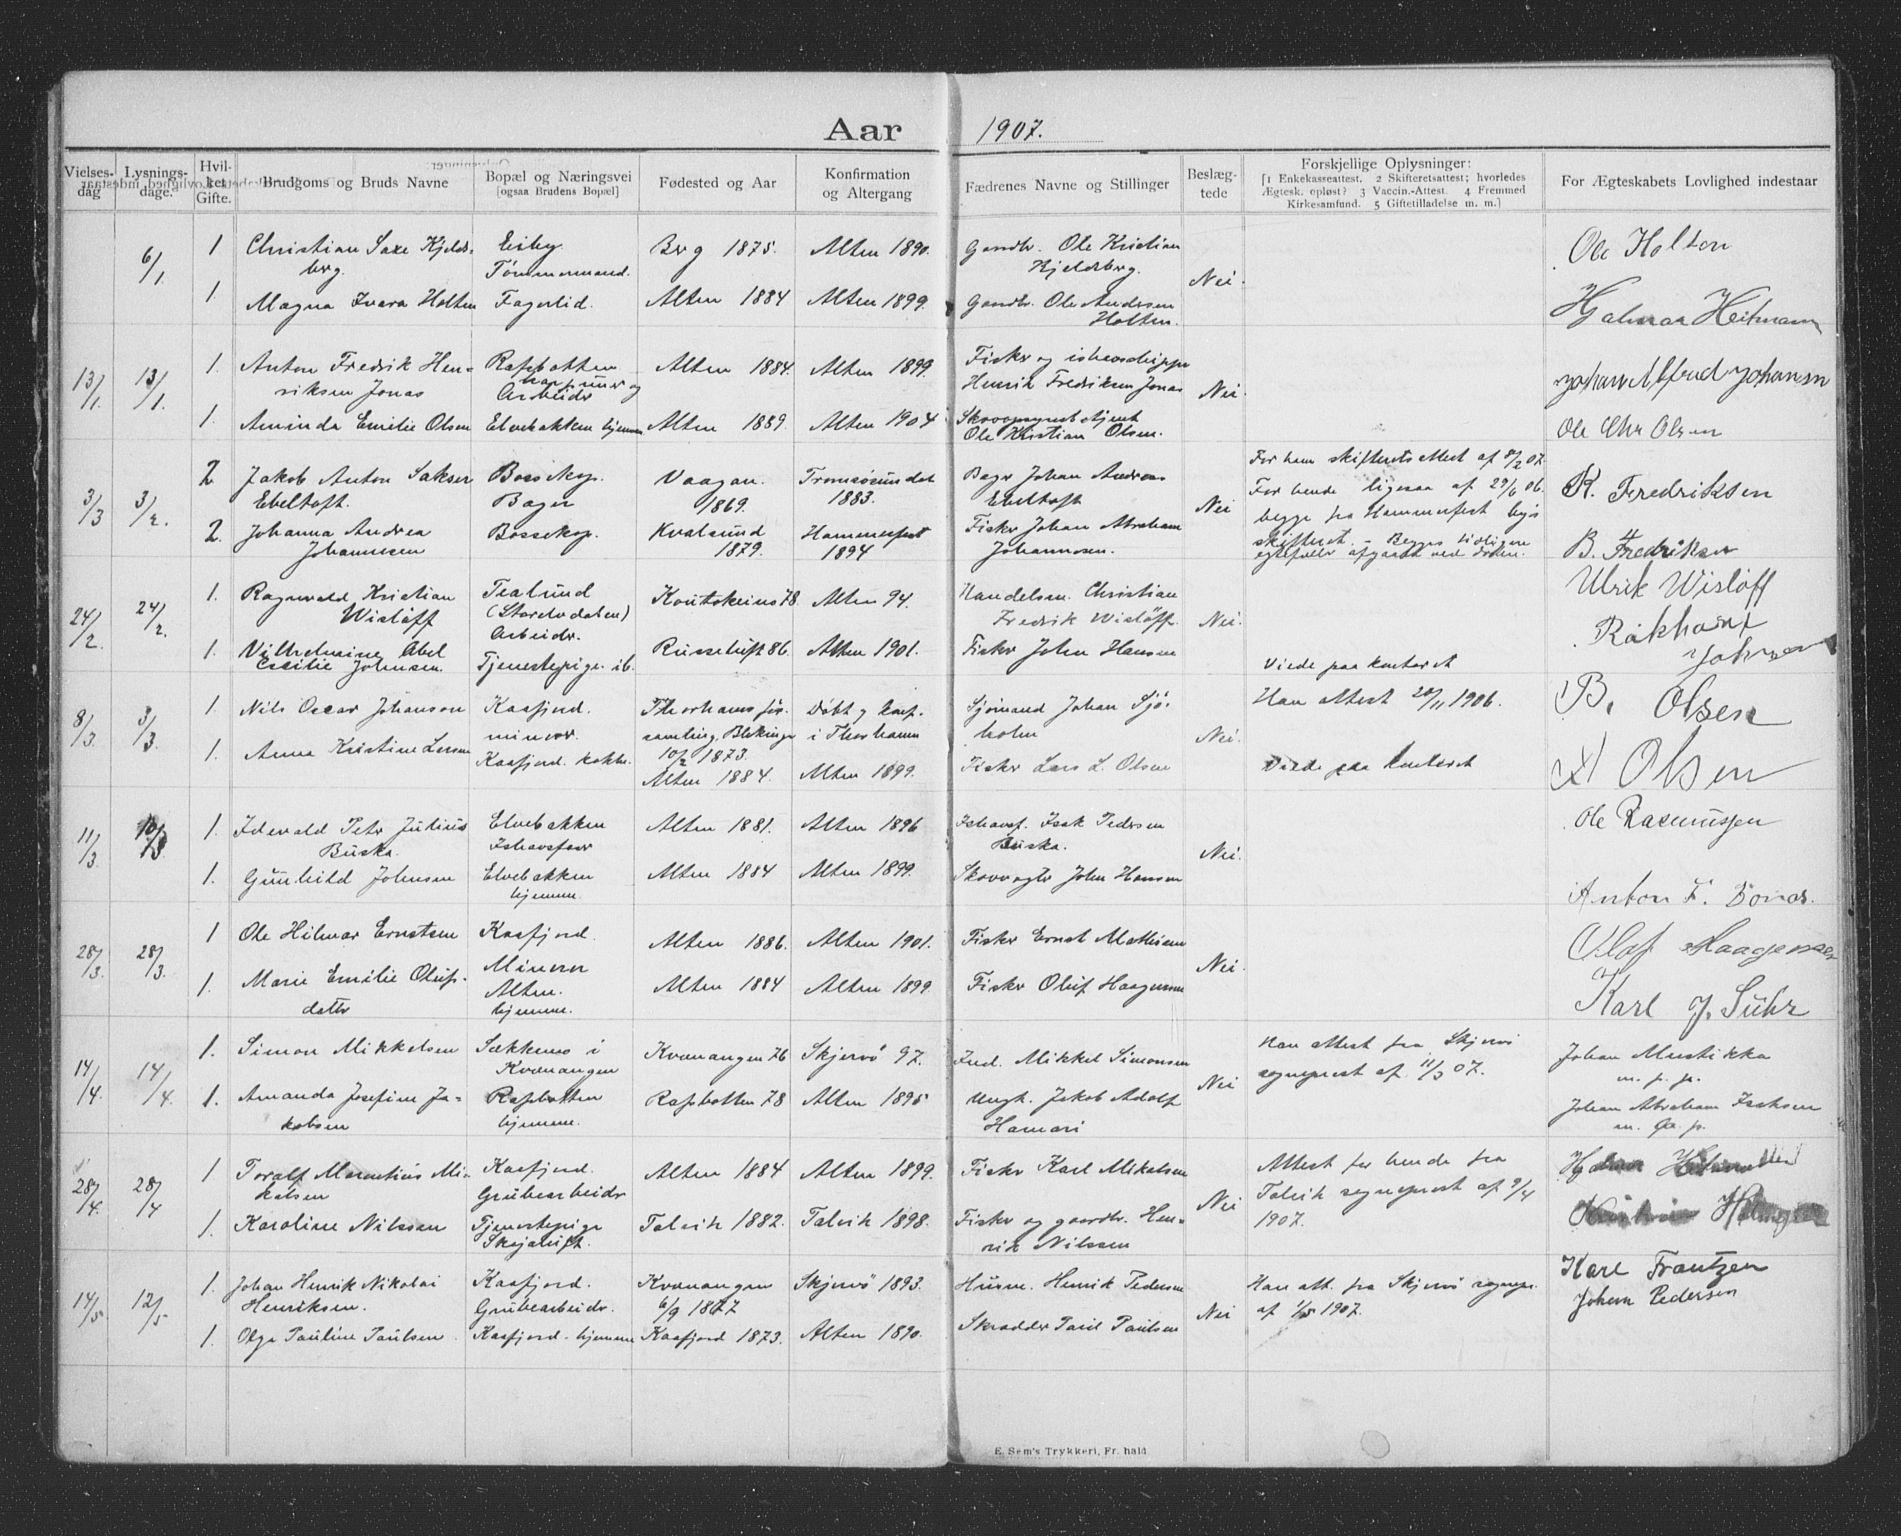 Aar 1907.
Vielsesdag
Lysningsdage.
Hvilket Gifte.
Brudgoms og Bruds Navne
Bopæl og Næringsvei
[ogsaa Brudens Bopæl]
Fødested og Aar
Konfirmation
og Altergang
Fædrenes Navne og Stillinger
Beslægtede
Forskjellige Oplysninger:
[1 Enkekasseattest. 2 Skifteretsattest; hvorledes
Ægtesk. opløst? 3 Vaccin.-Attest. 4 Fremmed
Kirkesamfund. 5 Giftetilladelse m. m.]
For Ægteskabets Lovlighed indestaar
6/1 1 Christian Saxe Kjelds- Eiby Berg 1875. Alten 1890. Gaardbr. Ole Kristian Ole Holten
berg. Tømmermand. Kjeldsberg. Nei.
1 Magna Ivara Holten Fagerlid. Alten 1884 Alten 1899. Gaardbr. Ole Andersen Hjalmar Heitmann
Holten.
13/1. 13/1. 1. Anton Fredrik Hen- Rafsbotten Alten 1884. Alten 1899. Fisker og ishavsskipper Johan Alfred Johansen
riksen Jonas Arbeider Henrik Fredriksen Jonas Nei
1. Aminda Emilie Olsen Elvebakken hjemme Alten 1889 Alten 1904 Ole Chr Olsen
Ole Kristian Olsen.
3/3 3/2. 2 Jakob Anton Sakser Bossekop. Vaagan. Tromsøsundet Bager Johan Andreas For ham skifteretsattest af 8/2 07. K. Fredriksen
Ebeltoft. Bager 1869. 1883. Ebeltoft Nei For hende ligesaa af 29/6 06.
2. Johanna Andrea Bossekop. Kvalsund Hammerfest Fisker Johan Abraham begge fra Hammerfest bys B. Fredriksen
Johannesen 1879. 1894 Johannesen. skifteret. - Begges tidligere
egtefæller afgaaet ved døden.
24/2 24/2. 1. Ragnvald Kristian Kautokeino 78. Alten 94. Handelsm. Christian Ulrik Wisløff
Wisløff (Storelvdalen) Fredrik Wisløff. Nei.
Arbeider.
1. Vilhelmine Abel Tjenestepige. ib. Russeluft 86. Alten 1901. Fisker John Hansen Viede paa kontoret Johnsen
Cecilie Johnsen.
8/3. 3/3. 1 Nils Oscar Johanson Kaafjord. Thorhamns för- Døbt og konf. Sjömand Johan Sjö- Han attest 20/11 1906. B. Olsen
minør. samling, Blekinge i Thorhamn holm Nei.
10/2 1873.
1. Anna Kristine Larsen Kaafjord. kokke. Alten 1884. Alten 1899. Fisker Lars L. Olsen Viede paa kontoret Olsen
11/3. 10/3 1. Idevald Peter Julius Elvebakken Alten 1881. Alten 1896 Ishavsf. Isak Pedersen Ole Rasmussen
Buska. Ishavsfarer Buska. Nei.
1. Gunhild Johnsen Elvebakken Alten 1884 Alten 1899. Skovvogter John Hansen Anton F. Jonas.
hjemme.
28/3. 28/3. 1 Ole Hilmar Ernstsen Kaafjord. Alten 1886. Alten 1901. Fisker Ernst Mathisen Olaf Haagensen
Minører Nei.
1. Marie Emilie Olufs- Alten. Alten 1884 Alten 1899. Fisker Oluf Haagensen Karl J. Suhr
datter hjemme.
14/4. 14/4. 1. Simon Mikkelsen Sækkenes i Kvænangen 76 Skjervø 97. Ind. Mikkel Simonsen Han attest fra Skjervø Johan Mustikka
Kvænangen sogneprest af 11/3 07. m. p. p.
1. Amanda Josefine Ja- Rafsbotten Rafsbotten 78 Alten 1895 Ungk. Jakob Adolf Nei Johan Abraham Isaksen
kobsen hjemme. Hamari m. p. p.
28/4. 28/4 1 Toralf Marentius Mi- Kaafjord. Alten 1884 Alten 1899. Fisker Karl Mikalsen Attest for hende fra
kalsen Grubearbeider Nei Talvik sogneprest af 9/4
1. Karoline Nilssen Tjenestepige Talvik 1882. Talvik 1898. Fisker og gaardbr. Hen- 1907.
Skjaluft. rik Nilssen
14/5. 12/5 1. Johan Henrik Nikolai Kaafjord. Kvænangen Skjervø 1893. Husm. Henrik Pedersen Han att. fra Skjervø sognepr. Karl Frantzen
Henriksen. Grubearbeider. 6/9 1877 Nei af 1/5 1907. Johan Pedersen
1. Olga Pauline Paulsen Kaafjord - hjemme Kaafjord 1873. Alten 1890. Skrædder Paul Paulsen
E. Sem's Trykkeri, Fr. hald